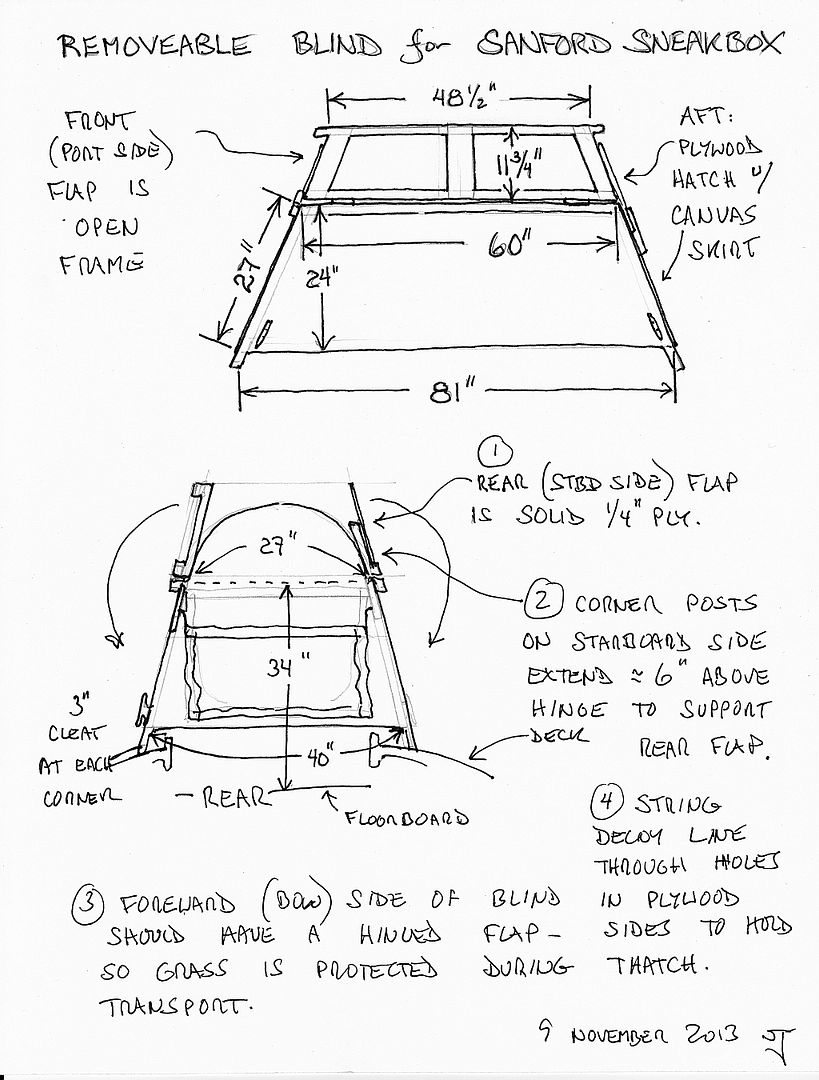 REMOVEABLE BLIND for SANFORD SNEAKBOX
48 1/2"
FRONT
(PORT SIDE)
FLAP IS
OPEN
FRAME
11 3/4"
AFT:
PLYWOOD
HATCH w/
CANVAS
SKIRT
27"
24"
60"
81"
1
REAR (STBD SIDE) FLAP
IS SOLID 1/4" PLY.
27"
2 CORNER POSTS
ON STARBOARD SIDE
EXTEND ≈ 6" ABOVE
HINGE TO SUPPORT
REAR FLAP.
34"
3"
CLEAT
AT EACH
CORNER
40"
DECK
- REAR
FLOORBOARD
4 STRING
DECOY LINE
THROUGH HOLES
IN PLYWOOD
SIDES TO HOLD
THATCH.
3 FOREWARD (BOW) SIDE OF BLIND
SHOULD HAVE A HINGED FLAP -
SO GRASS IS PROTECTED DURING
TRANSPORT.
9 NOVEMBER 2013 SJ